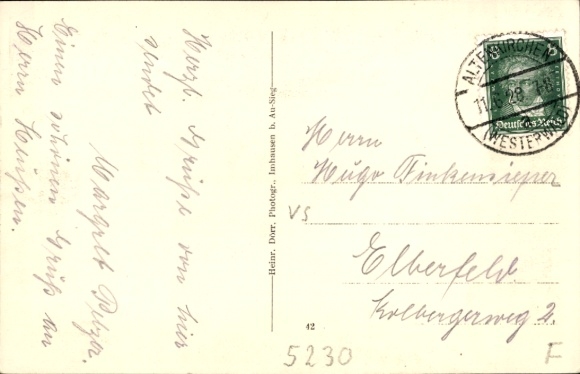 Herzl. Grüße von hier
sendet
Margret
Einen schönen Gruß an
Herrn
Heinr. Dörr, Photogr., Imhausen b. Au-Sieg
8
ALTENKIRCHEN
11.6.28
(WESTERWALD)
Deutsches Reich
Herrn
Hugo Finkensieper
VS
Elberfeld
Kolbergerweg 2.
42
5230
F